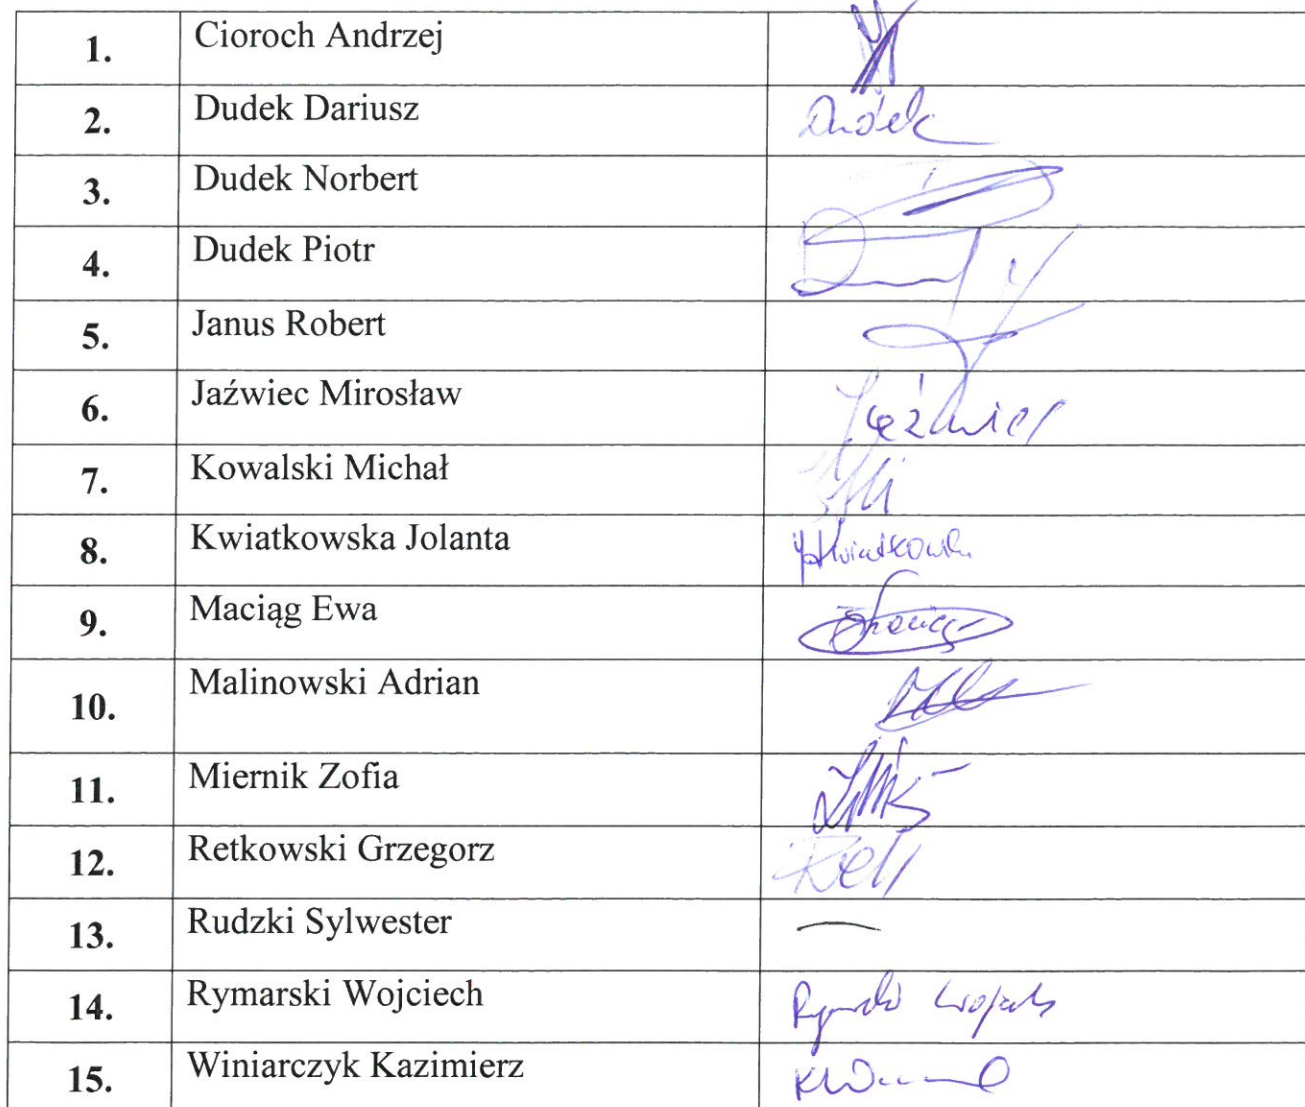 1. Cioroch Andrzej
2. Dudek Dariusz Dudek
3. Dudek Norbert
4. Dudek Piotr
5. Janus Robert
6. Jaźwiec Mirosław Jaźwiec
7. Kowalski Michał
8. Kwiatkowska Jolanta
9. Maciąg Ewa
10. Malinowski Adrian
11. Miernik Zofia
12. Retkowski Grzegorz
13. Rudzki Sylwester —
14. Rymarski Wojciech
15. Winiarczyk Kazimierz